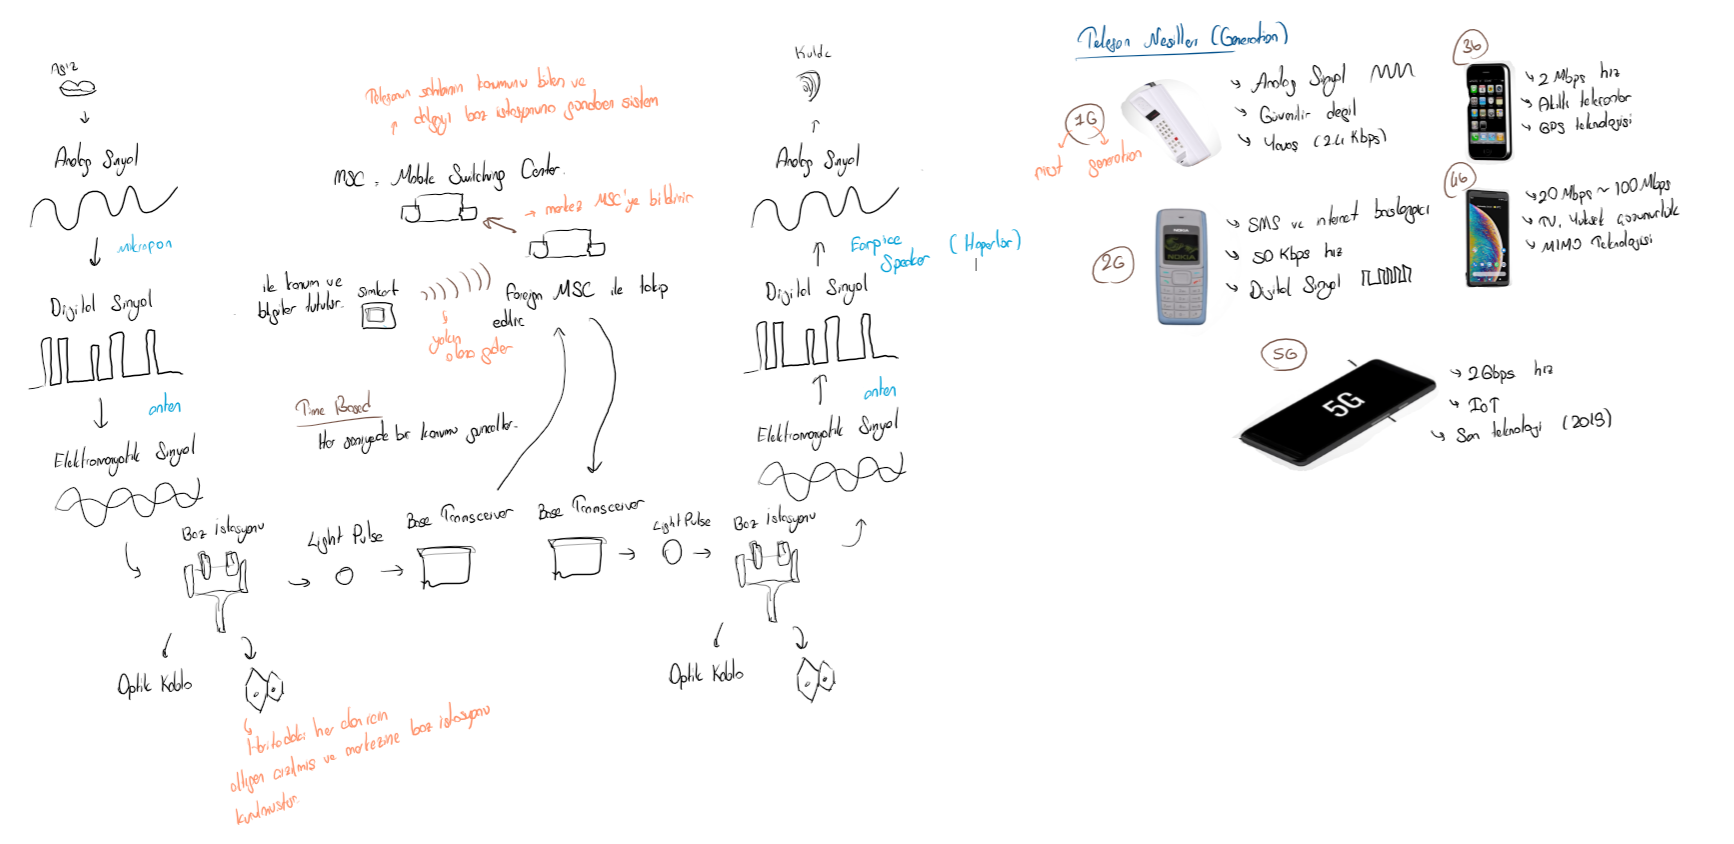 Ağız
Analog Sinyal
Mikrofon
Digital Sinyal
anten
Elektromanyetik Sinyal
Baz istasyonu
Optik Kablo
Haritadaki her alan için
altıgen çizilmiş ve merkezine baz istasyonu
kurulmuştur
Light Pulse
Base Transceiver
Telefonun sahibinin konumunu bilen ve
dalgayı baz istasyonuna gönderen sistem
MSC = Mobile Switching Center.
→ merkez MSC'ye bildirir
ile konum ve
bilgiler tutulur.
Simkart
yakın
olana gider
Foreign MSC ile takip
edilir
Time Based
Her saniyede bir konumu günceller.
Base Transceiver
Light Pulse
Baz istasyonu
Optik Kablo
Kulak
Analog Sinyal
Earpice
Speaker (Hoparlör)
Digital Sinyal
anten
Elektromanyetik Sinyal
Telefon Nesilleri (Generation)
1G
first generation
Analog Sinyal
Güvenilir değil
Yavaş (2.4 Kbps)
2G
NOKIA
SMS ve internet başlangıcı
50 Kbps hız
Digital Sinyal
3G
2 Mbps hız
Akıllı telefonlar
GPS teknolojisi
4G
20 Mbps ~ 100 Mbps
TV, Yüksek çözünürlük
MIMO Teknolojisi
5G
5G
2Gbps hız
IoT
Son teknoloji (2019)